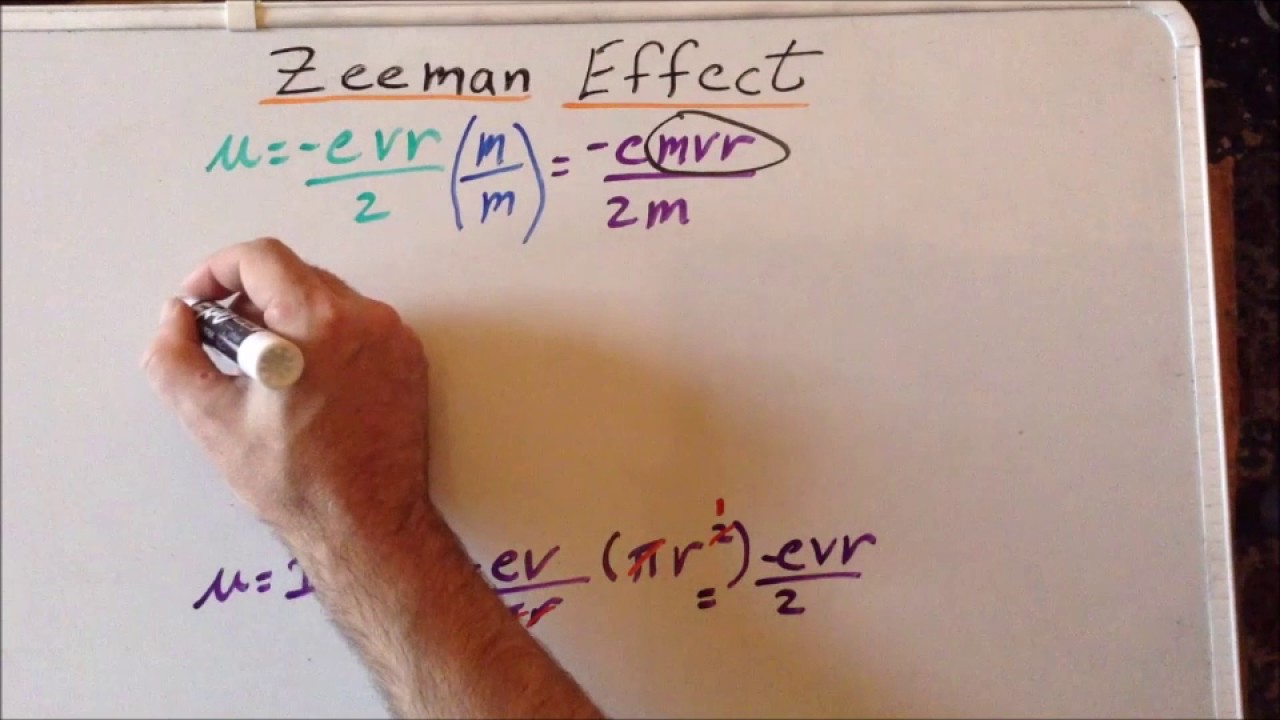 Zeeman Effect
μ = -evr/2 (m/m) = -emvr/2m
μ = I -ev/ r (πr²) = -evr/2
1